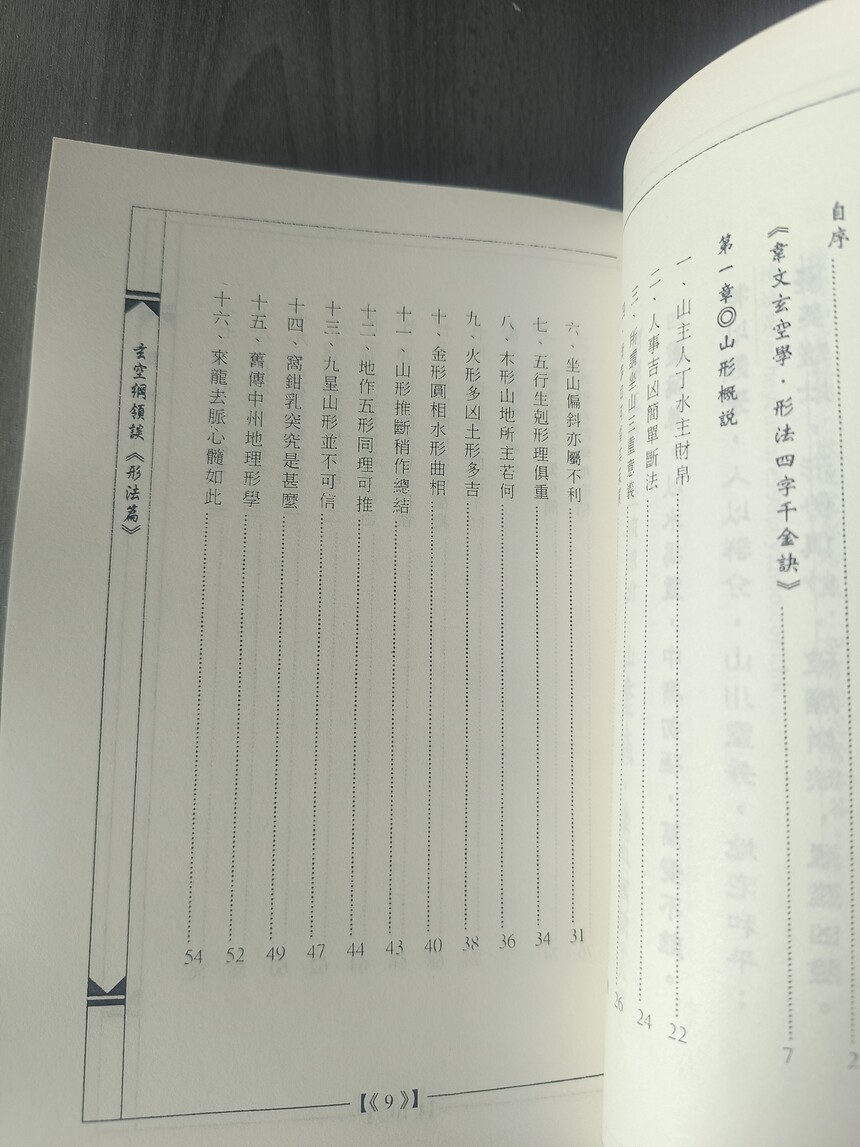 自序 2
《韋文玄空學·形法四字千金訣》 7
第一章◎山形概説
一、山主人丁水主財帛 22
二、人事吉凶簡單斷法 24
三、所謂坐山三重意義 26
六、坐山偏斜亦屬不利 31
七、五行生剋形理俱重 34
八、木形山地所主若何 36
九、火形多凶土形多吉 38
十、金形圓相水形曲相 40
十一、山形推斷稍作總結 43
十二、地作五形同理可推 44
十三、九星山形並不可信 47
十四、窩鉗乳突究是甚麼 49
十五、舊傳中州地理形學 52
十六、來龍去脈心髓如此 54
玄空綱領談《形法篇》
【《9》】